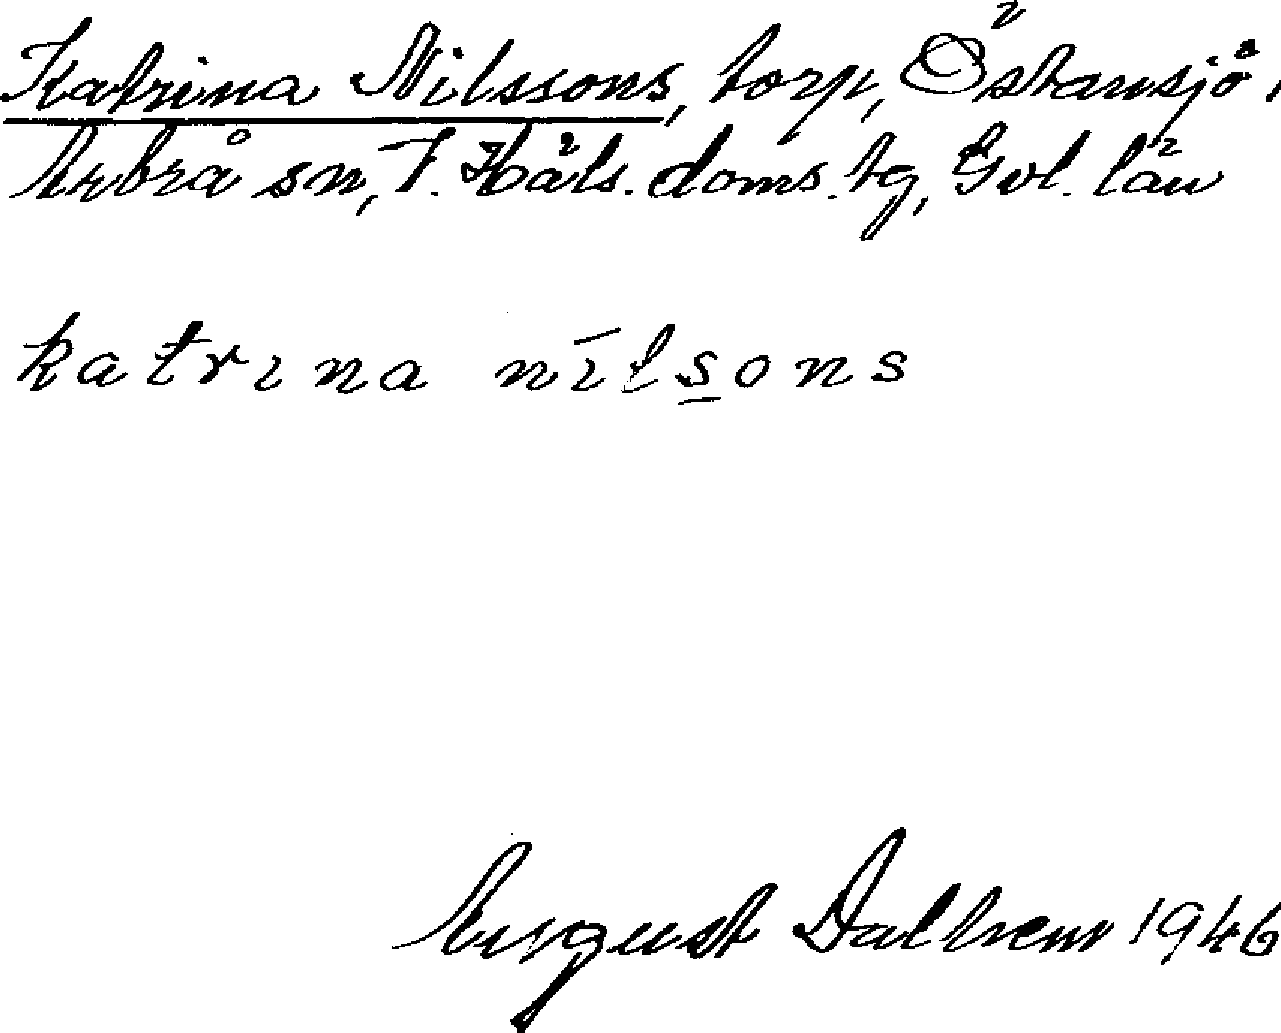 Katrina Nilssons, torp, Östansjö,
Arbrå sn, V. Häls. doms. tg, Gvl. län
katrina nīls̲ons
August Dalhem 1946